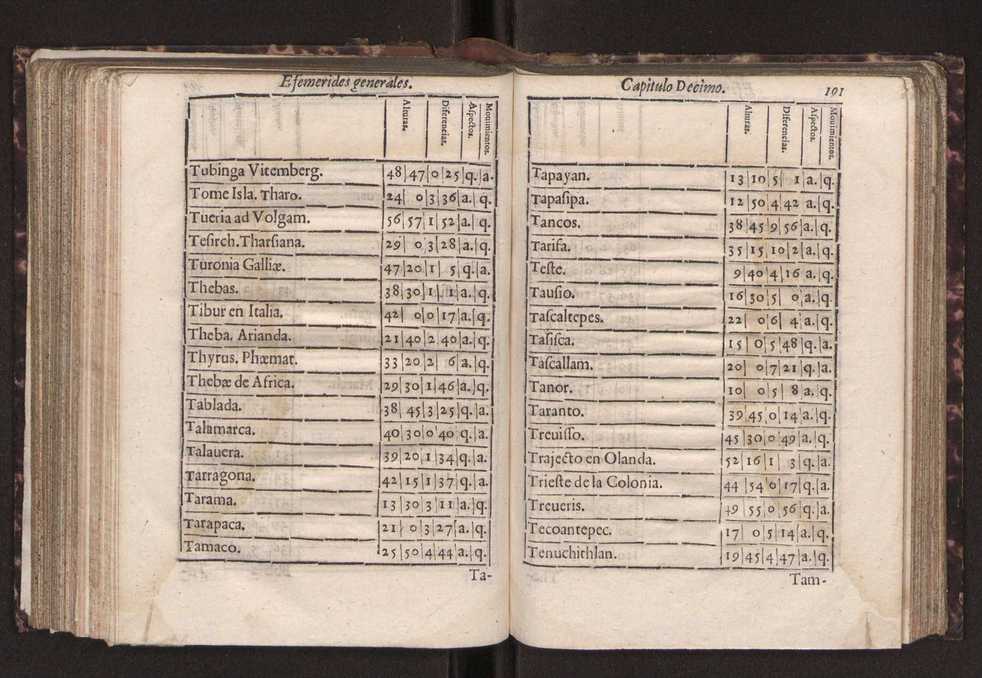 Efemerides generales.
Alturas. Diferencias. Aspectos. Mouimientos.
Tubinga Vitemberg. 48 47 0 25 q. a.
Tome Isla. Tharo. 24 0 3 36 a. q.
Tueria ad Volgam. 56 57 1 52 a. q.
Tesirch. Tharsiana. 29 0 3 28 a. q.
Turonia Galliæ. 47 20 1 5 q. a.
Thebas. 38 30 1 1 a. q.
Tibur en Italia. 42 0 0 17 a. q.
Theba. Arianda. 21 40 2 40 a. q.
Thyrus. Phæmat. 33 20 2 6 a. q.
Thebæ de Africa. 29 30 1 46 a. q.
Tablada. 38 45 3 25 q. a.
Talamarca. 40 30 0 40 q. a.
Talauera. 39 20 1 34 q. a.
Tarragona. 42 15 1 37 q. a.
Tarama. 13 30 3 11 a. q.
Tarapaca. 21 0 3 27 a. q.
Tamaco. 25 50 4 44 a. q.
Ta-
Capitulo Decimo. 191
Alturas. Diferencias. Aspectos. Mouimientos.
Tapayan. 13 10 5 1 a. q.
Tapasipa. 12 50 4 42 a. q.
Tancos. 38 45 9 56 a. q.
Tarifa. 35 15 10 2 a. q.
Teste. 9 40 4 16 a. q.
Tausio. 16 30 5 0 a. q.
Tascaltepes. 22 0 6 4 a. q.
Tasisca. 15 0 5 48 q. a.
Tascallam. 20 0 7 21 q. a.
Tanor. 10 0 5 8 a. q.
Taranto. 39 45 0 14 a. q.
Treuisso. 45 30 0 49 a. q.
Trajecto en Olanda. 52 16 1 3 q. a.
Trieste de la Colonia. 44 54 0 17 q. a.
Treueris. 49 55 0 56 q. a.
Tecoantepec. 17 0 5 14 a. q.
Tenuchithlan. 19 45 4 47 a. q.
Tam-